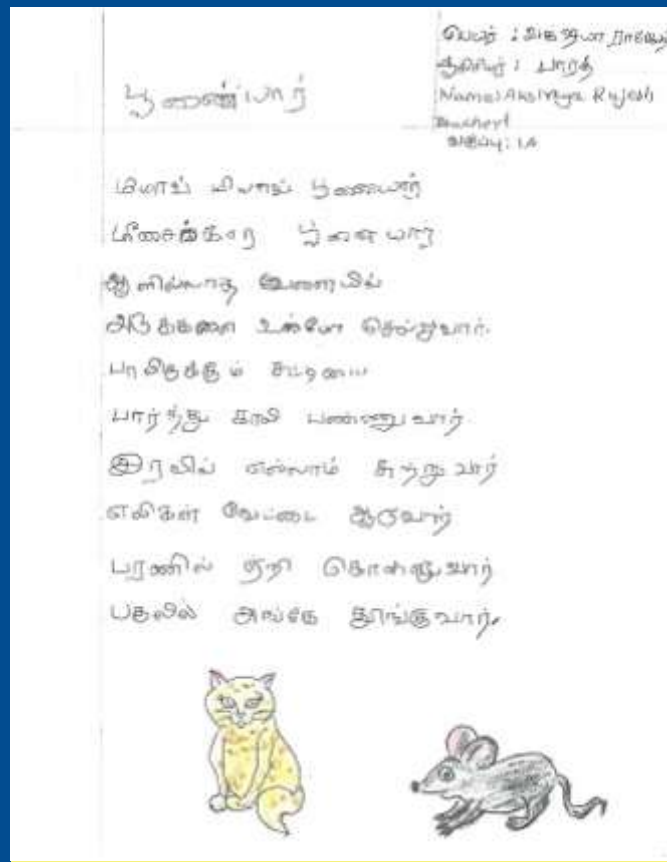 பெயர் : அக்ஷயா ராஜேஷ்
ஆசிரியர் : பாரதி
Name: Akshaya Rajesh
வகுப்பு: 1A
பூனையார்
மியாவ் மியாவ் பூனையார்
மீசைக்கார பூனையார்
ஆளில்லாத வேளையில்
அடுக்களை உள்ளே செல்லுவார்.
பாலிருக்கும் சட்டியை
பார்த்து காலி பண்ணுவார்
இரவில் எல்லாம் சுற்றுவார்
எலிகள் வேட்டை ஆடுவார்
பரணில் ஏறி கொள்ளுவார்
பகலில் அங்கே தூங்குவார்.